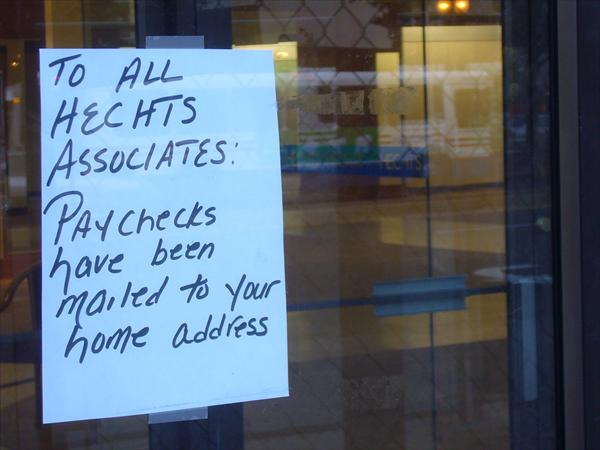 TO ALL
HECHTS
ASSOCIATES:
PAYchecks
have been
mailed to your
home address